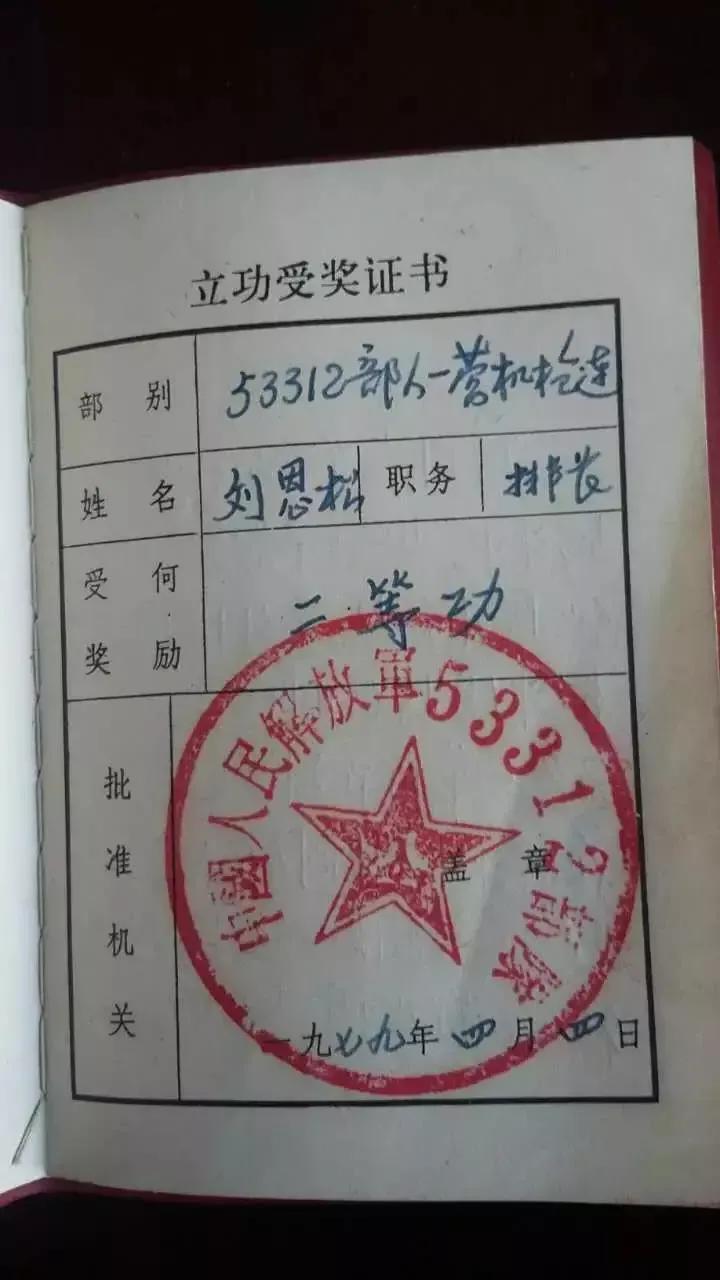 立功受奖证书
部别 53312部队一营机枪连
姓名 刘恩松 职务 排长
受何奖励 二等功
批准机关
中國人民解放軍53312部隊
盖章
一九七九年四月四日